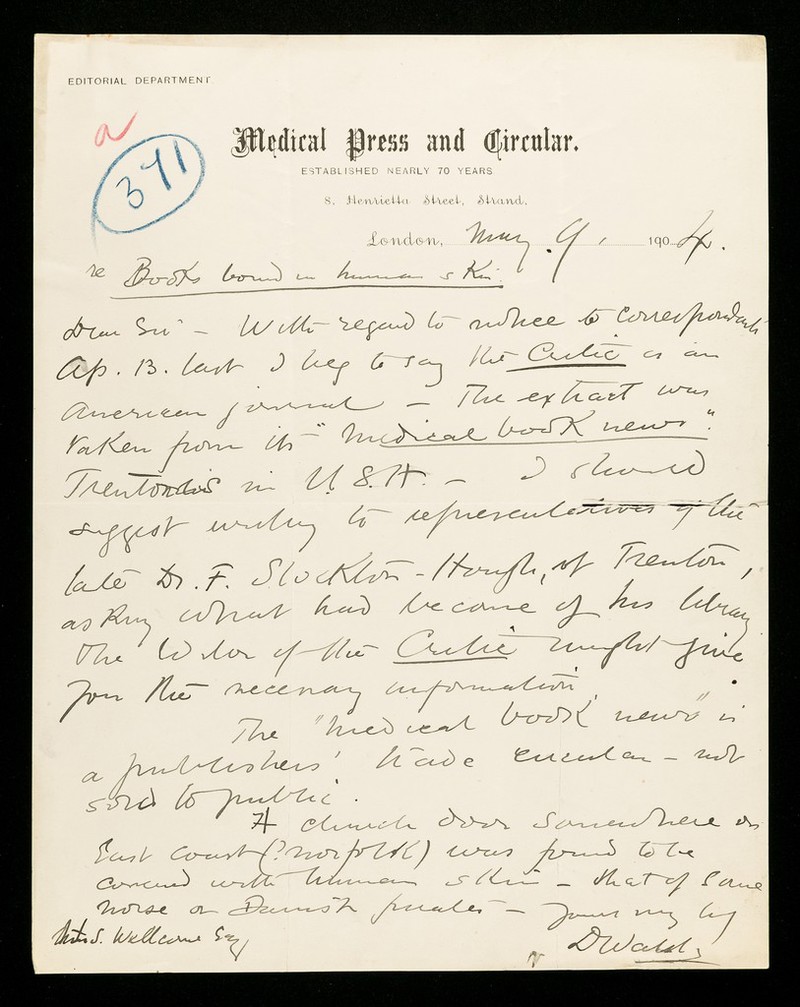 EDITORIAL DEPARTMENT.
a
371
Medical Press and Circular.
ESTABLISHED NEARLY 70 YEARS
8, Henrietta Street, Strand,
London, May 9, 1904.
re Books bound in human skin.
Dear Sir - With regard to notice to correspondents
Ap. 13. last I beg to say the Critic is an
American journal - The extract was
taken from its "Medical book news".
Trenton is in U.S.A. - I should
suggest writing to representatives of the
late Dr. F. Stockton-Hough, of Trenton,
asking what had become of his library
The Editor of the Critic might give
you the necessary information.
The "medical book news" is
a publishers' trade circular - not
sold to public.
A church door somewhere on
East coast (? Norfolk) was found to be
covered with human skin - that of some
Norse or Danish pirates - Yours very try
S. Wellcome Esq,